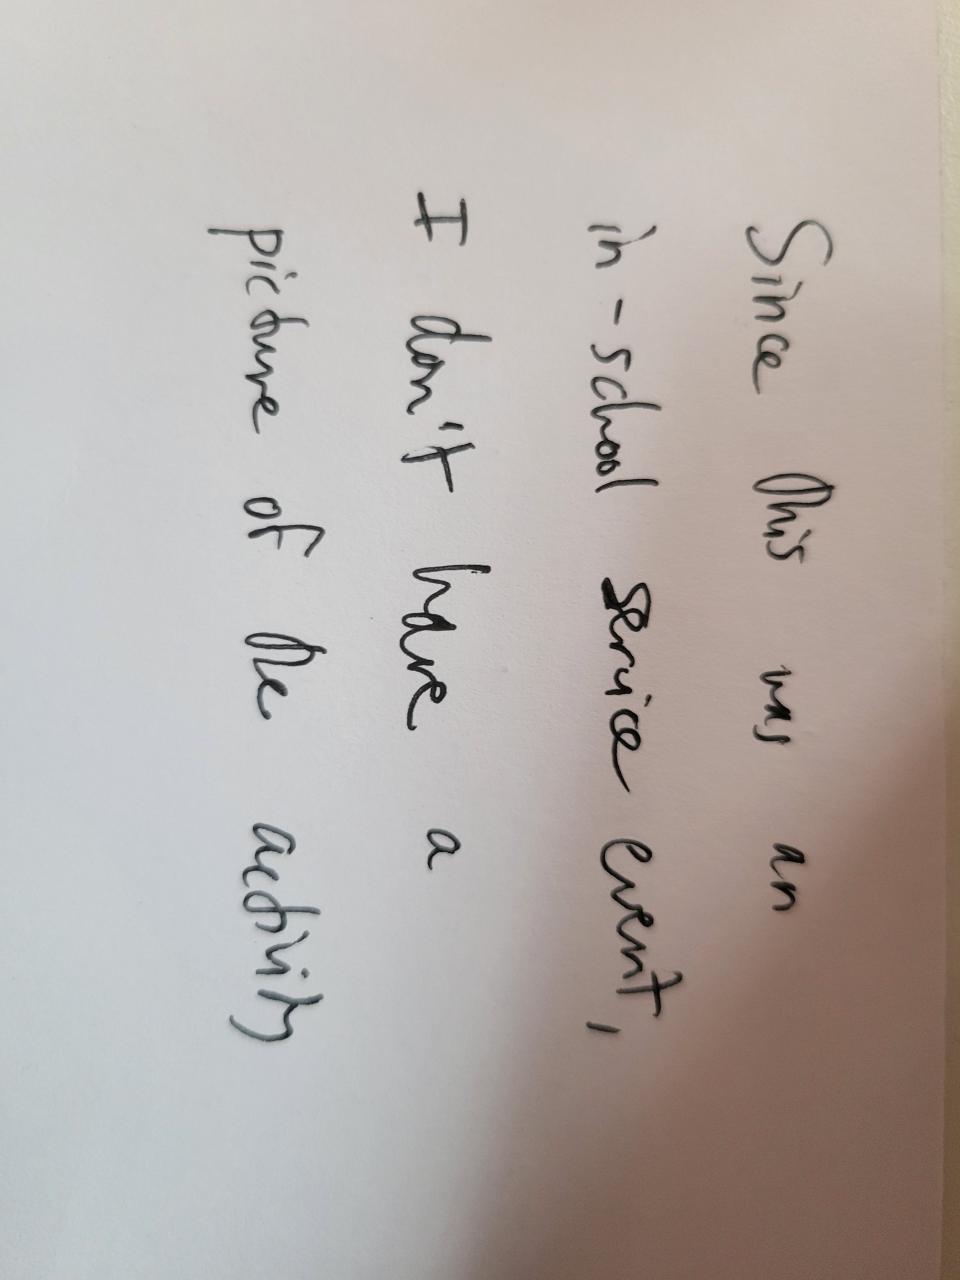 Since this was an
in-school service event,
I don't have a
picture of the activity